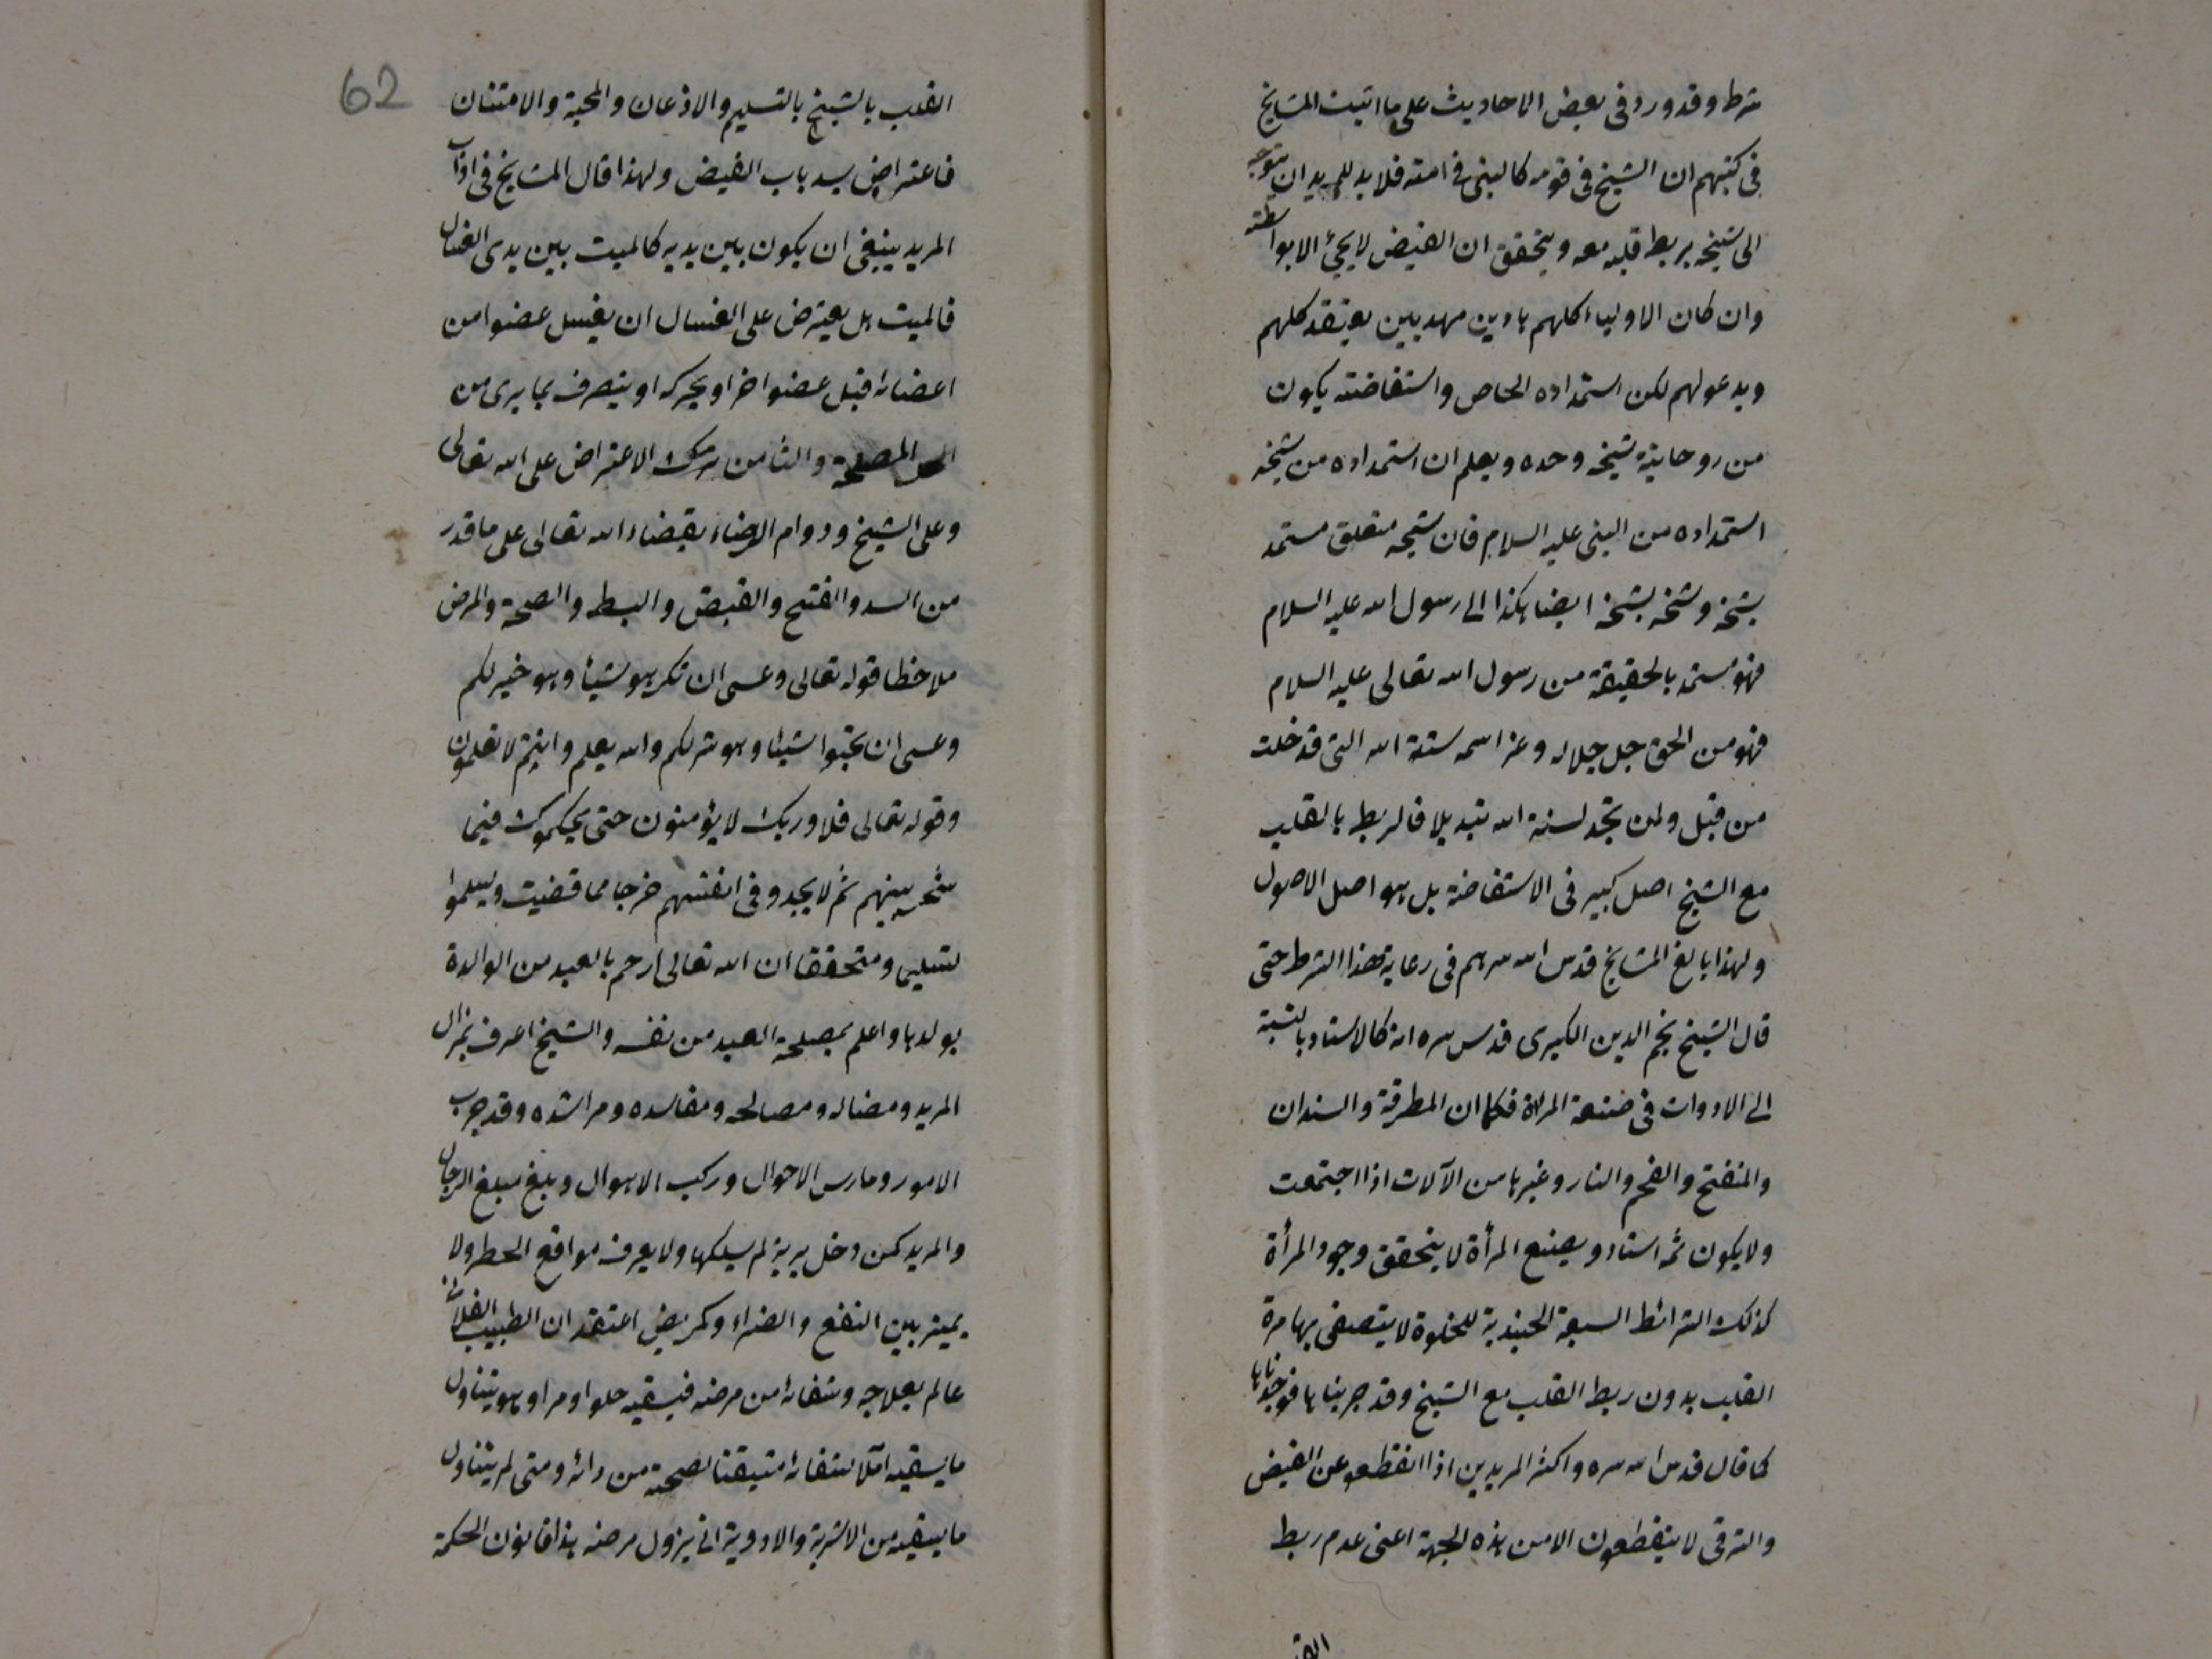 شرط وقد ورد فى بعض الاحاديث على ما اثبت المشايخ
فى كتبهم ان الشيخ فى قومه كالنبى فى امته فلا بد للمريد ان يتوجه
الى شيخه بربط قلبه معه ويتحقق ان الفيض لا يجئ الا بواسطته
وان كان الاولياء كلهم هادين مهديين يعتقد كلهم
ويدعو لهم لكن استمداده الخاص واستفاضته يكون
من روحانية شيخه وحده ويعلم ان استمداده من شيخه
استمداده من النبى عليه السلام فان شيخه متعلق مستمد
بشيخه وشيخه بشيخه ايضا هكذا الى رسول الله عليه السلام
فهو مستمد بالحقيقة من رسول الله تعالى عليه السلام
فهو من الحق جل جلاله وعز اسمه سنة الله التى قد خلت
من قبل ولن تجد لسنة الله تبديلا فالربط بالقلب
مع الشيخ اصل كبير فى الاستفاضة بل هو اصل الاصول
ولهذا بالغ المشايخ قدس الله سرهم فى رعاية هذا الشرط حتى
قال الشيخ نجم الدين الكبرى قدس سره انه كالاستاد بالنسبة
الى الادوات فى صنعة المراة فكما ان المطرقة والسندان
والمنفخ والفحم والنار وغيرها من الآلات اذا اجتمعت
ولا يكون ثمه استاد ويصنع المرأة لا يتحقق وجود المرأة
كذلك الشرائط السبعة الجنيدية للخلوة لا يتصفى بها مرة
القلب بدون ربط القلب مع الشيخ وقد جربناها فوجدناها
كما قال قدس الله سره واكثر المريدين اذا انقطعو عن الفيض
والترقى لا ينقطعون الا من هذه الجهة اعنى عدم ربط
62
القلب بالشيخ بالتسليم والاذعان والمحبة والامتنان
فاعتراض يسد باب الفيض ولهذا قال المشايخ فى اداب
المريد ينبغى ان يكون بين يديه كالميت بين يدى الغسال
فالميت هل يعترض على الغسال ان يغسل عضوا من
اعضائه قبل عضوا اخر او يحركه او يتصرف بما يرى من
المصلحة والثامن ترك الاعتراض على الله تعالى
وعلى الشيخ ودوام الرضاء بقضاء الله تعالى على ما قدر
من السد والفتح والقبض والبسط والصحة والمرض
ملاحظا قوله تعالى وعسى ان تكرهو شيئا وهو خير لكم
وعسى ان تحبوا شيئا وهو شر لكم والله يعلم وانتم لا تعلمون
وقوله تعالى فلا وربك لا يؤمنون حتى يحكموك فيما
شجر بينهم ثم لا يجدو فى انفسهم حرجا مما قضيت ويسلموا
تسليما ومتحققا ان الله تعالى ارحم بالعبد من الوالدة
بولدها واعلم بمصلحة العبد من نفسه والشيخ اعرف
المريد ومضاله ومصالحه ومفاسده ومراشده وقد جرب
الامور ومارس الاحوال وركب الاهوال وبلغ مبلغ الرجال
والمريد كمن دخل برية لم يسلكها ولا يعرف مواقع الخطر ولا
يميز بين النفع والضراء وكمريض اعتقد ان الطبيب الفلان
عالم بعلاجه وشفائه من مرضه فيسقيه حلوا ومرا وهو يتناول
ما يسقيه آملا شفائه متيقنا لصحته من دائه ومتى لم يتناول
ما يسقيه من الاشربة والادوية انى يزول مرضه هذا قانون الحكمة